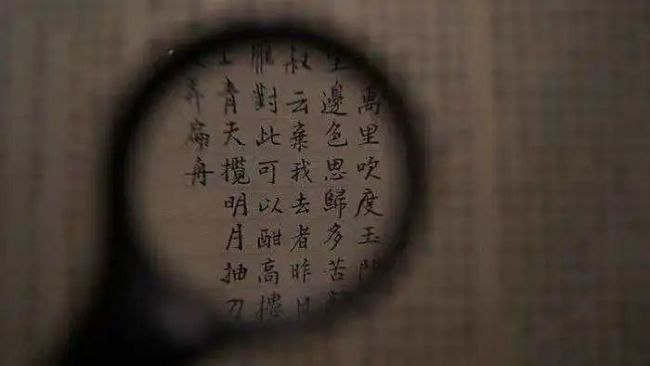 萬里吹度玉門
邊色思歸多苦
叔云棄我去者昨日
對此可以酣高樓
上青天攬明月抽刀
弄扁舟